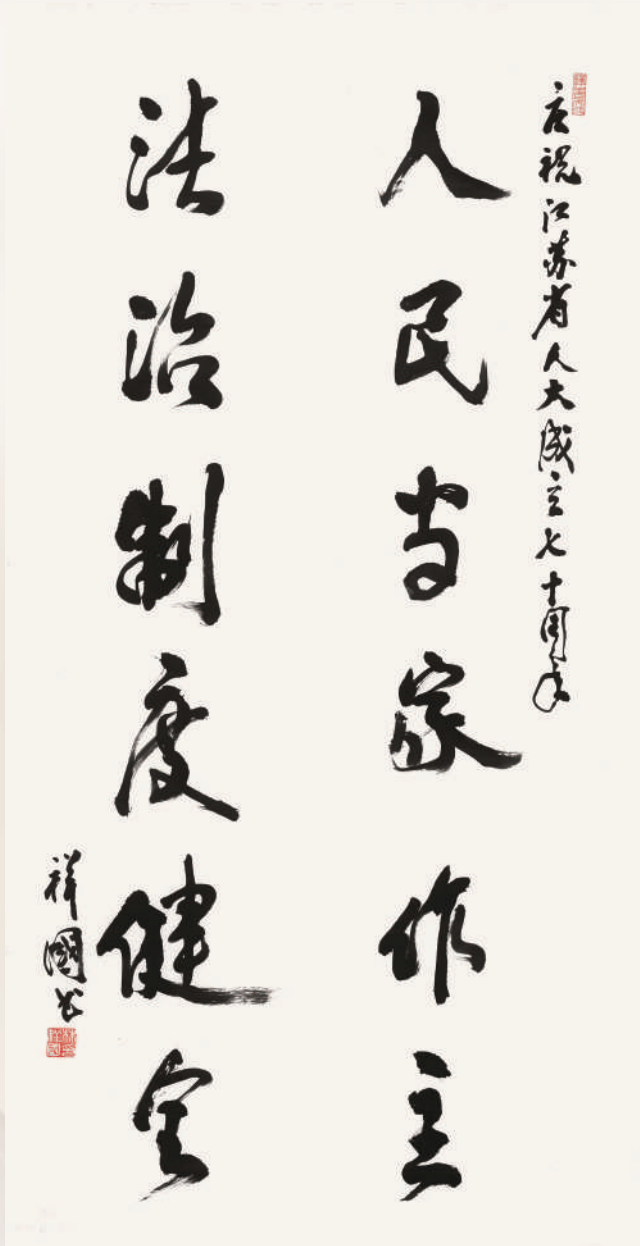 庆祝江苏省人大成立七十周年
人民当家作主
法治制度健全
祥國书